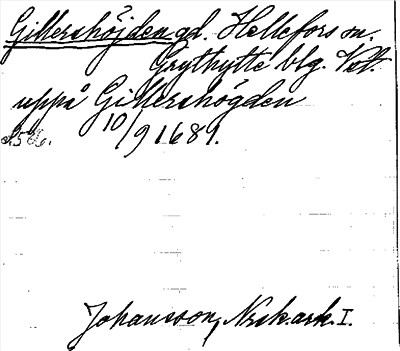 Gillershöjden gd. Hellefors sn.
Grythytte blg. Vstl.
uppå Gillershögden
10/9 1689.
Johansson, Nrsk. ark. I.